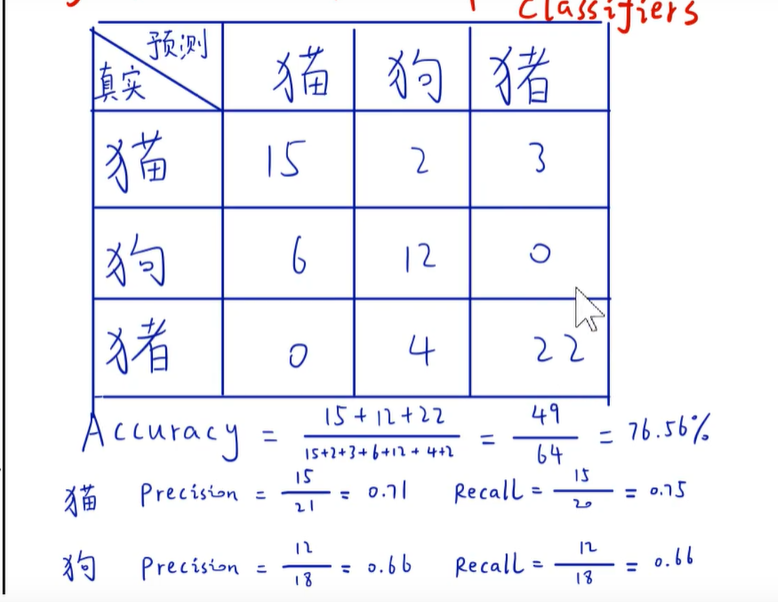 classifiers
预测
真实 猫 狗 猪
猫 15 2 3
狗 6 12 0
猪 0 4 22
Accuracy = 15+12+22 / 15+2+3+6+12+4+2 = 49 / 64 = 76.56%
猫 Precision = 15 / 21 = 0.71 Recall = 15 / 20 = 0.75
狗 Precision = 12 / 18 = 0.66 Recall = 12 / 18 = 0.66